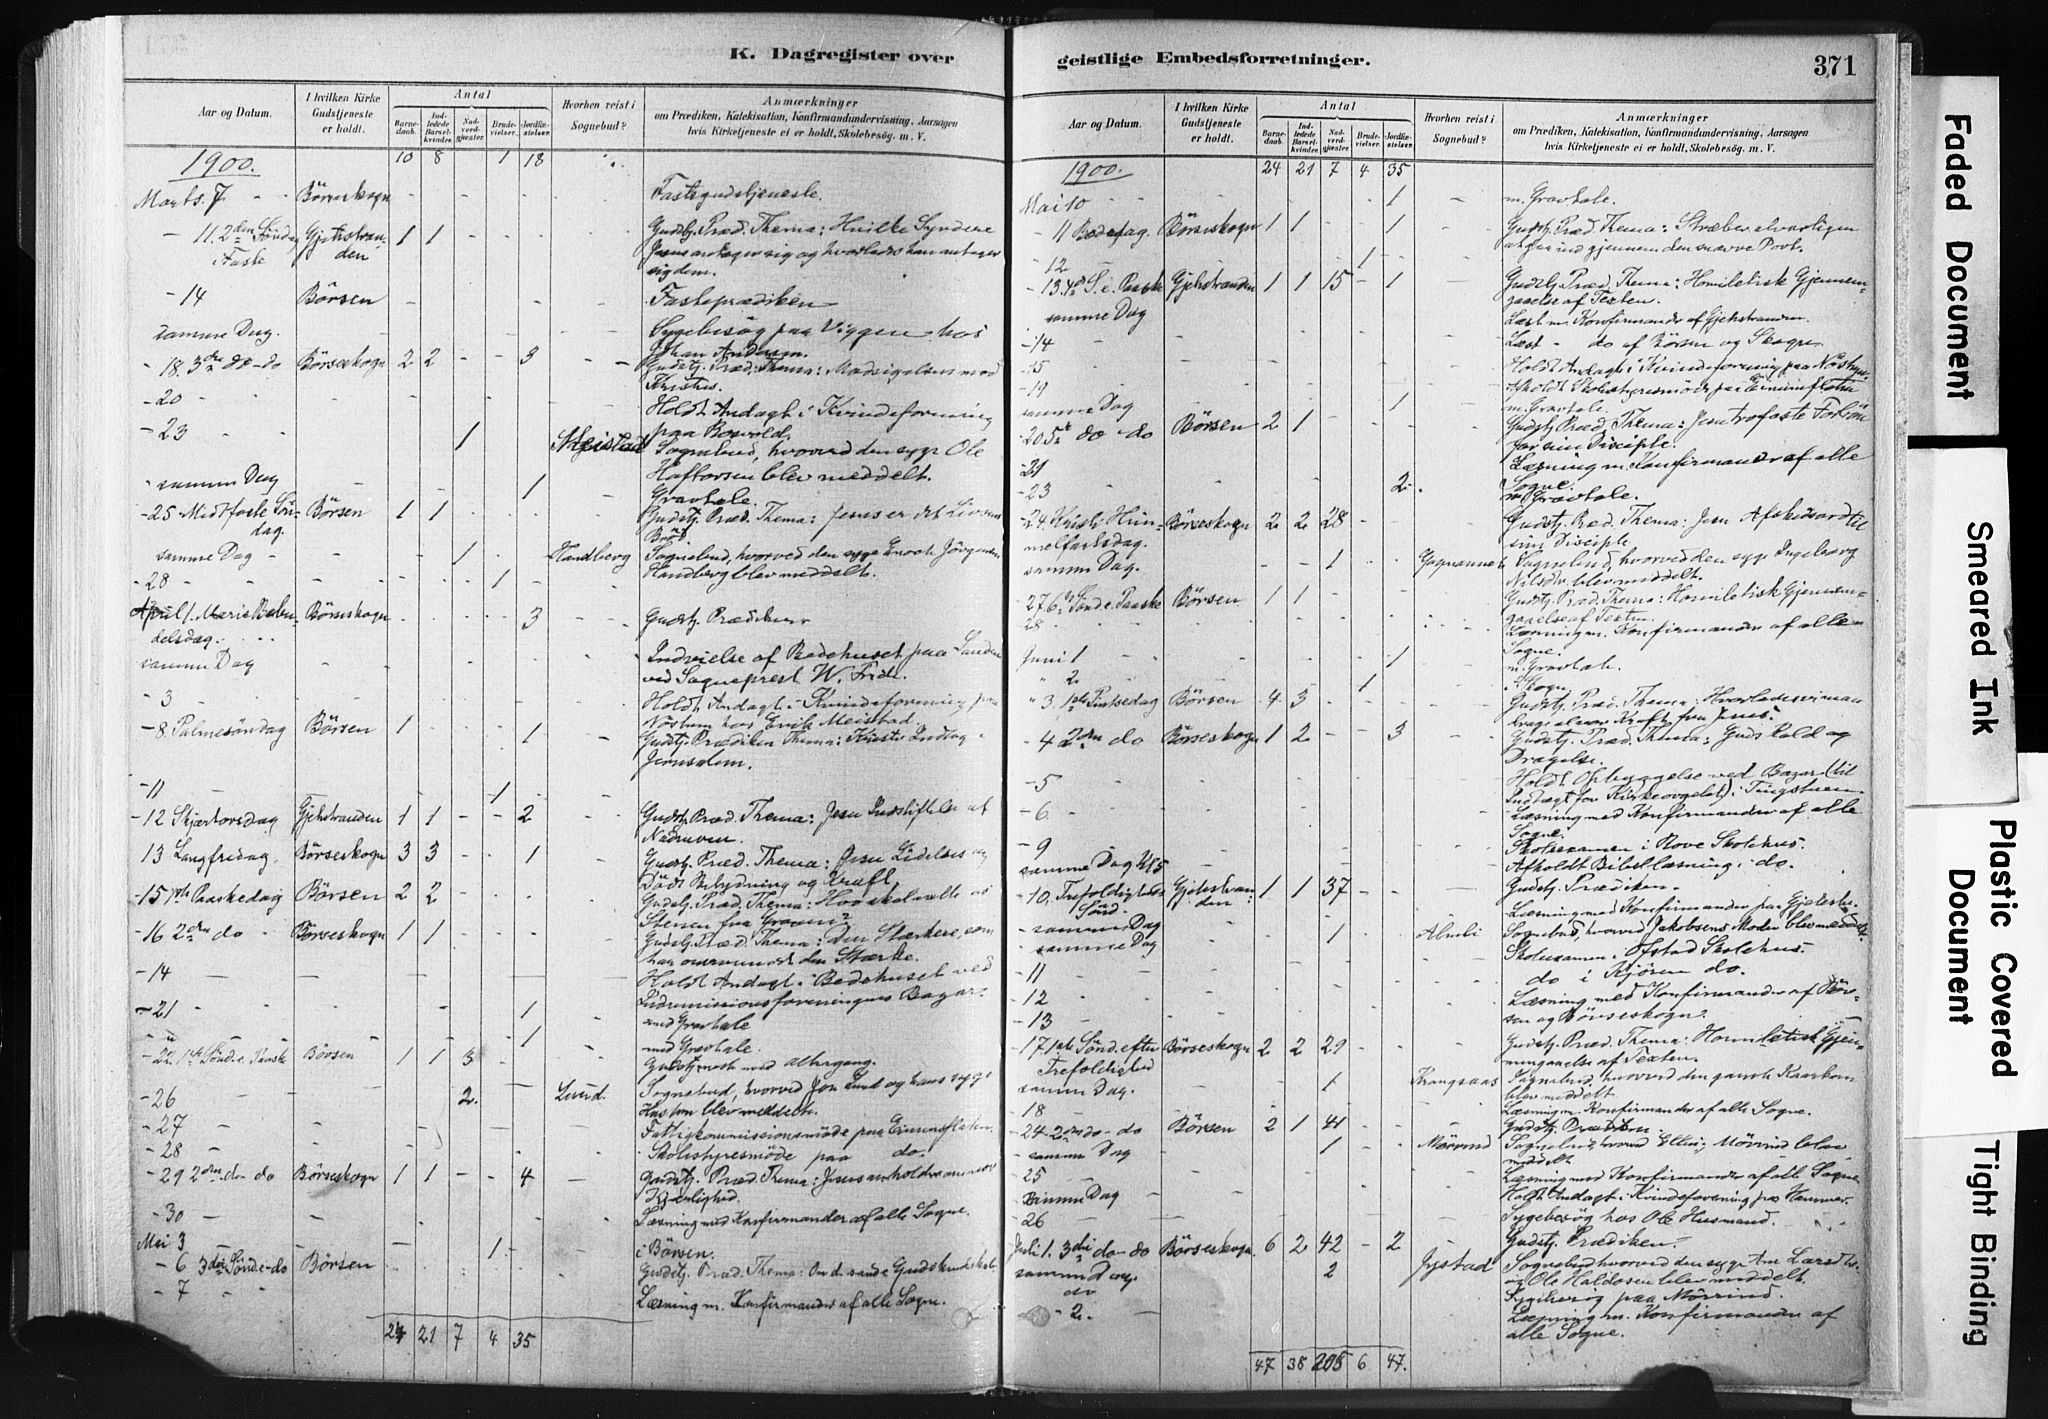 K. Dagregister over
Aar og Datum.
I hvilken Kirke Gudstjeneste er holdt.
Antal
Barne-daab.
Ind-ledede Barsel-kvinder.
Nad-verd-gjæster.
Brude-vielser.
Jordfæ-stelser.
Hvorhen reist i Sognebud?
Anmærkninger
om Prædiken, Katekisation, Konfirmandundervisning, Aarsagen
hvis Kirketjeneste ei er holdt, Skolebesøg. m. V.
1900. 10 8 1 18
Marts 7 Börseskogn Fastegudstjeneste.
- 11. 2den Söndag Gjethstran- 1 1 Gudstj. Præd. Thema: Hvilke Syndere
Faste den Jesus antager sig og hvorledes han antager
sig dem.
- 14 Börsen Fasteprædiken
samme Dag. Sygebesög paa Viggen hos
Johan Andersen.
- 18. 3die do - do Börseskogn 2 2 - - 3 Gudstj. Præd. Thema: Modsigelsen mod
Kristus.
- 20 Holdt Andagt i Kvindeforening
paa Rosvold.
- 23 1 Mejstad Sognebud, hvorved den syge Ole
Haftorsen blev meddelt.
samme Dag 1 Gravtale.
- 25 Midtfaste Sön- Börsen 1 1 Gudstj. Præd. Thema: Jesus er det Livsens
dag. Bröd.
samme Dag 1 Handberg Sognebud, hvorved den syge Enoch Jörgensen
Handberg blev meddelt.
- 28 1
April 1. Maria Bebu- Börseskogn 3 Gudstj. Prædiken
delsdag.
samme Dag Indvielse af Bedehuset paa Sanden
ved Sogneprest W. Frich.
- 3 Holdt Andagt i Kvindeforening paa
Nöstum hos Erik Meistad.
- 8. Palmesöndag Börsen 1 1 Gudstj. Prædiken Thema: Kristi Indtog i
Jerusalem.
- 11 1
- 12 Skjærtorsdag Gjethstranden 1 1 - - 2 Gudstj. Præd. Thema: Jesu Indstiftelse af
Nadveren.
13 Langfredag. Börseskogn 3 3 1 Gudstj. Præd. Thema: Jesu Lidelses og
Döds Betydning og Kraft.
- 15 1ste Paaskedag Börsen 2 2 Gudstj. Præd. Thema: Hvo skal vælte os
Stenen fra Graven?
- 16 2den do Börseskogn 1 1 Gudstj. Præd. Thema: Den Stærkere, som
har overvundet den Stærke.
- 14 Holdt Andagt i Bedehuset ved
Indremissionsforeningens Bazar.
- 21 1 med Gravtale
1 med Gravtale.
- 22. 1ste Sönd. e. Paaske Börsen 1 1 3 Gudstjeneste med altergang.
- 26 2. Lund. Sognebud, hvorved Jon Lund og hans syge
Hustru blev meddelt.
- 27 Fattigkommissionsmöde paa Eimensflaten.
- 28 Skolestyresmöde paa do.
- 29 2den do do Börseskogn 1 1 - - 4 Gudstj. Præd. Thema: Jesus anholder om vor
Kjærlighed.
- 30 Læsning med Konfirmander af alle Sogne.
Mai 3 1 i Börsen.
- 6 3die Sönd. e. do Börsen Gudstj. Præd. Thema: Om d. sande Gudskundskab.
- 7 Læsning m. Konfirmander af alle Sogne.
24 21 7 4 35
geistlige Embedsforretninger.
371
Aar og Datum.
I hvilken Kirke Gudstjeneste er holdt.
Antal
Barne-daab.
Ind-ledede Barsel-kvinder.
Nad-verd-gjæster.
Brude-vielser.
Jordfæ-stelser.
Hvorhen reist i Sognebud?
Anmærkninger
om Prædiken, Katekisation, Konfirmandundervisning, Aarsagen
hvis Kirketjeneste ei er holdt, Skolebesøg. m. V.
1900. 24 21 7 4 35
Mai 10 1 m. Gravtale.
- 11 Bededag. Börseskogn 1 1 1 Gudstj. Præd. Thema: Stræber alvorligen
at gaa ind gjennem den snævre Port.
- 12 1
- 13. 4de S. e. Paaske Gjethstranden 1 1 15 - 1 Gudstj. Præd. Thema: Homiletisk Gjennem-
gaaelse af Texten.
samme Dag Læst m. Konfirmander af Gjethstranden.
- 14 Læst - do af Börsen og Skogn.
- 15 Holdt Andagt i Kvindeforening paa Nöstum
- 19 Afholdt Skolestyresmöde paa Eimensflaten
samme Dag 1 m. Gravtale.
- 20 5te do do Börsen 2 1 Gudstj. Præd. Thema: Jesu trofaste Forbön
for sine Disciple.
- 21 Læsning m. Konfirmander af alle
Sogne.
- 23 2 m Gravtale.
- 24 Kristi Him- Börseskogn 2 2 28 Gudstj. Præd. Thema: Jesu Afskedsord til
melfartsdag. sine Disciple
samme Dag. 1 Sognebud, hvorved den syge Ingeborg
Nilsdtr. blev meddelt.
- 27 6te Sönd e. Paaske Börsen 1 1 Gudstj. Præd. Thema: Homiletisk Gjennem-
gaaelse af Texten.
28 Læsning m. Konfirmander af alle
Sogne.
Juni 1 1 m. Gravtale.
" 2 1 i Skogn.
" 3. 1ste Pintsedag Börsen 4 3 Gudstj. Præd. Thema: Hvorledes vi man
Kraft fra Jesus.
- 4 2den do Börseskogn 1 2 3 Gudstj. Præd. Thema: Guds Kald og
Dragelse.
- 5 Holdt Opbyggelse ved Bazar (til
Indtægt for Kirkeorgelet) i Tingstuen.
- 6 Læsning med Konfirmander af alle
Sogne.
- 9 Skoleexamen i Rove Skolehus.
samme Dag Kl 5 Afholdt Bibellæsning i do.
- 10. Trefoldigheds Gjethstran- 1 1 37 Gudstj. Prædiken.
Sönd. den
- samme Dag Læsning med Konfirmander paa Gjethstr.
- samme Dag 1 Almli Sognebud, hvorved Jakobsens Moder blev meddelt.
- 11 Skoleexamen i Öfstad Skolehus.
- 12 do i Kjören do.
- 13 Læsning med Konfirmander af Bör-
sen og Börseskogn.
- 17 1ste Sönd. efter Börseskogn 2 2 29 Gudstj. Præd. Thema: Homiletisk Gjen-
Trefoldighed nemgaaelse af Texten.
samme Dag. 1 Krangsaas Sognebud, hvorved den gamle
blev meddelt.
18 Læsning m. Konfirmander af alle Sogne.
- 24 2den do - do Börsen 2 1 41 Gudstj. Prædiken.
- samme Dag 1 Mörrind Sognebud hvorved Mörrind blev
meddelt
25 Læsning med Konfirmander af alle Sogne.
samme Dag Holdt Andagt i Kvindeforening paa Hammer.
26 Sygebesög hos Ole Husmand.
Juli 1. 3die do - do Börseskogn 6 2 42 - 2 Gudstj. Prædiken.
samme Dag 2 Jystad Sognebud hvorved den syge Ane Larsdtr.
og Ole Haldosen blev meddelt.
do Sygebesög paa Mörrind.
- 2. Læsning m. Konfirmander af
alle Sogne.
47 38 208 6 47.
Faded Document
Smeared Ink
Plastic Covered Document
Tight Binding